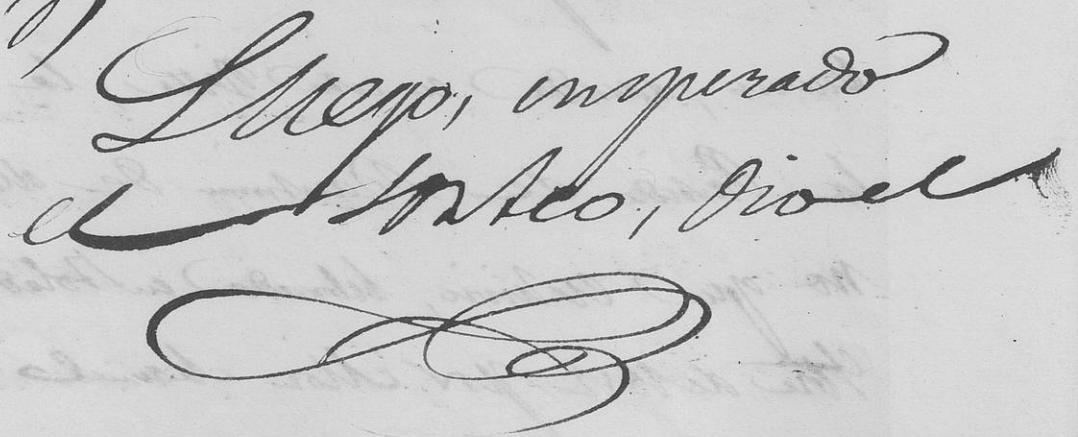 Luego, empezado
el Sorteo, dio el